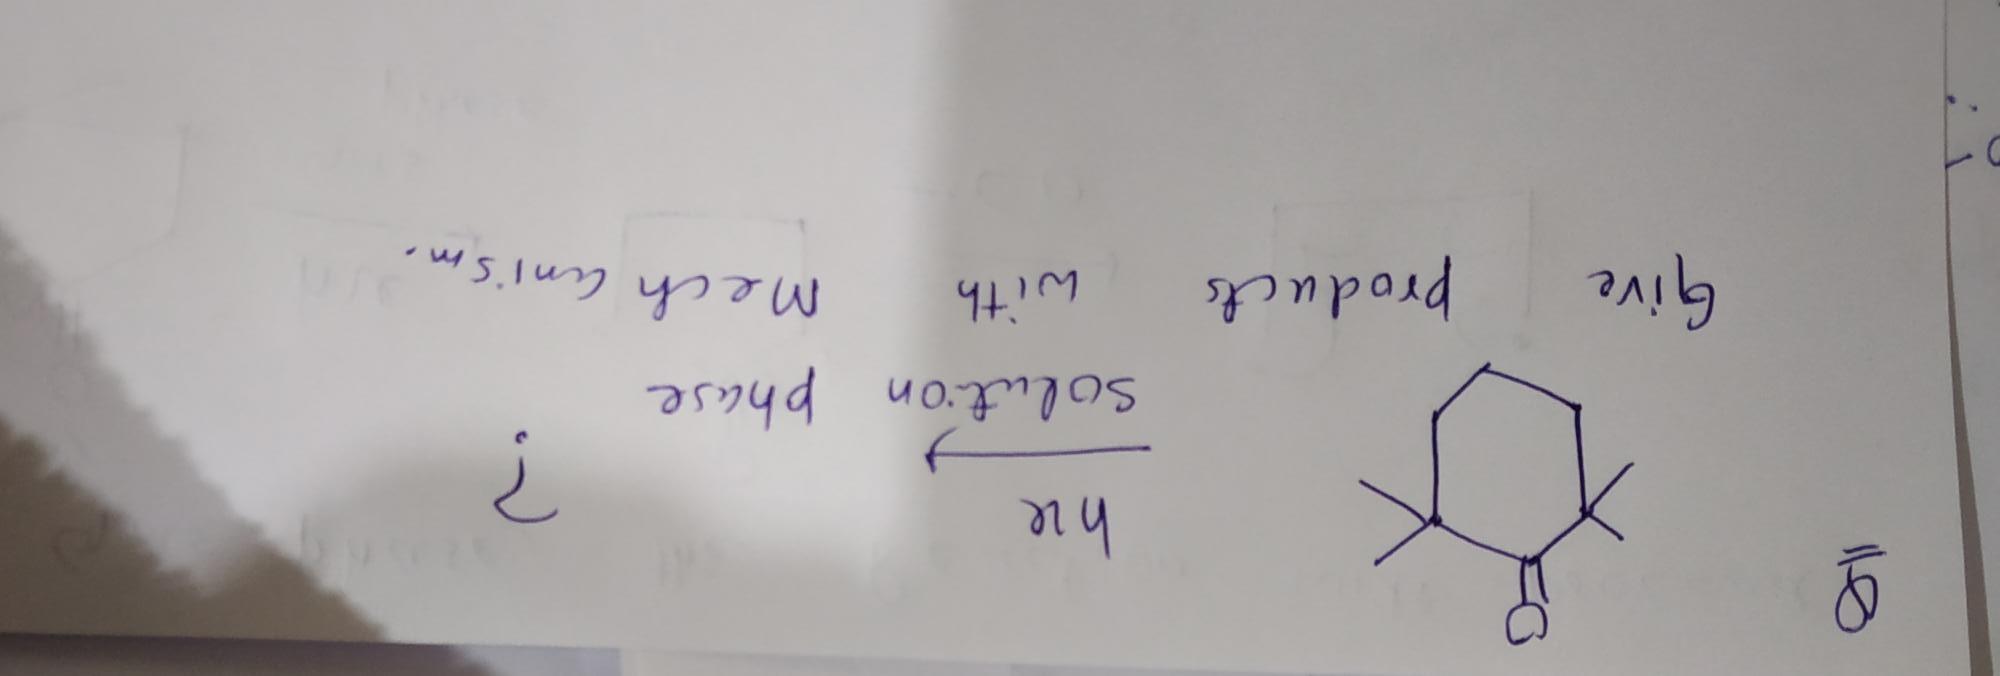 Q
O
hν
?
solution phase
Give products with Mechanism.